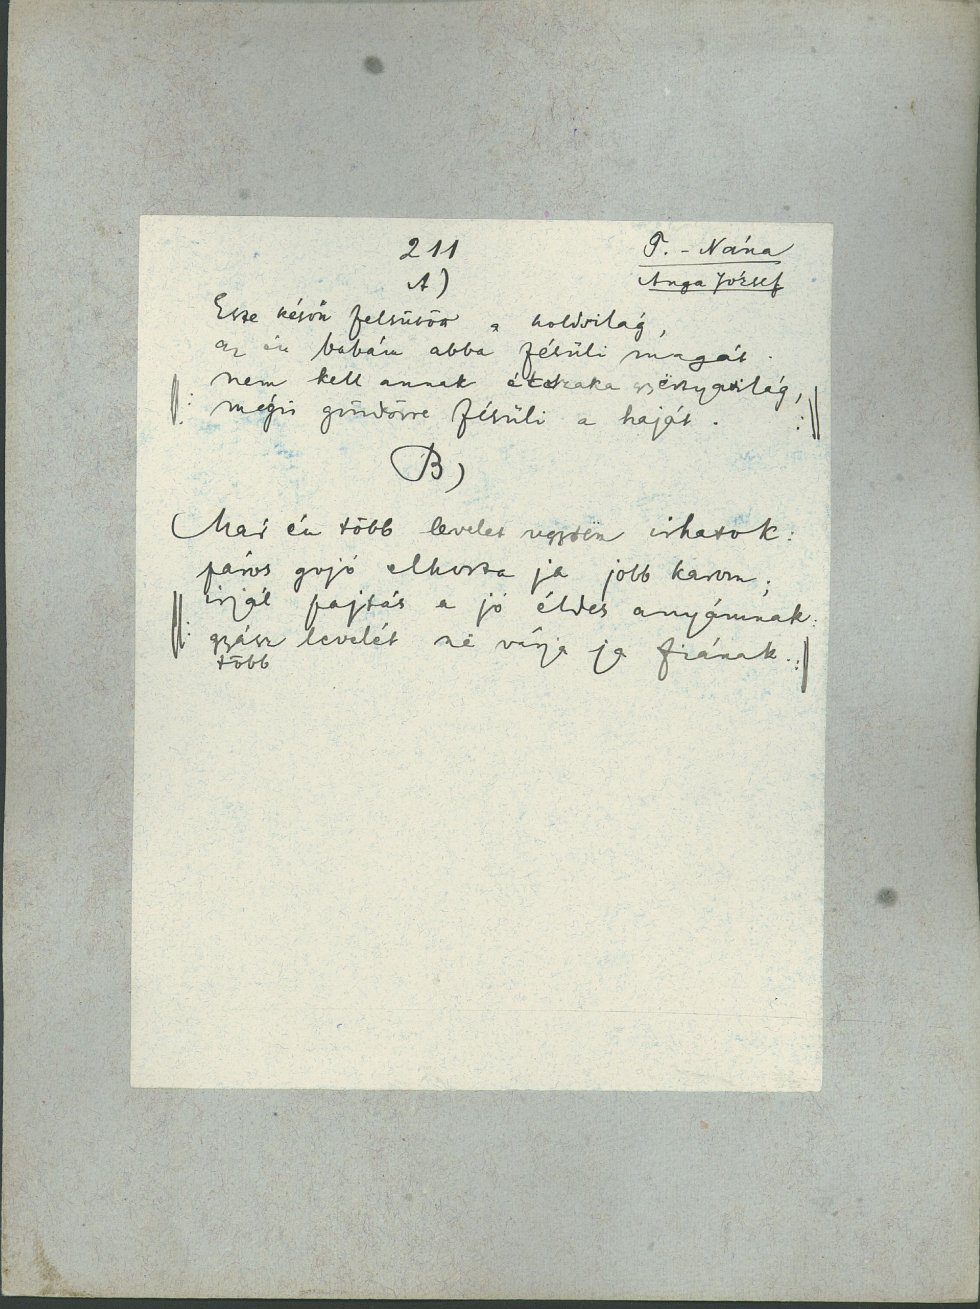 211
T. - Nána
Anga József
A)
Este késön felsütött a holdvilág,
az én babám abba fésüli magát.
||: nem kell annak étszaka gyërtyavilág,
mégis göndörre fésüli a haját. :||
B)
Mai én több levelet irhatok:
páros gojó elhorta ja jobb karom,
||: irjál pajtás a jó éldes anyámnak:
gyász levelét në várja ja fiának. :||
több